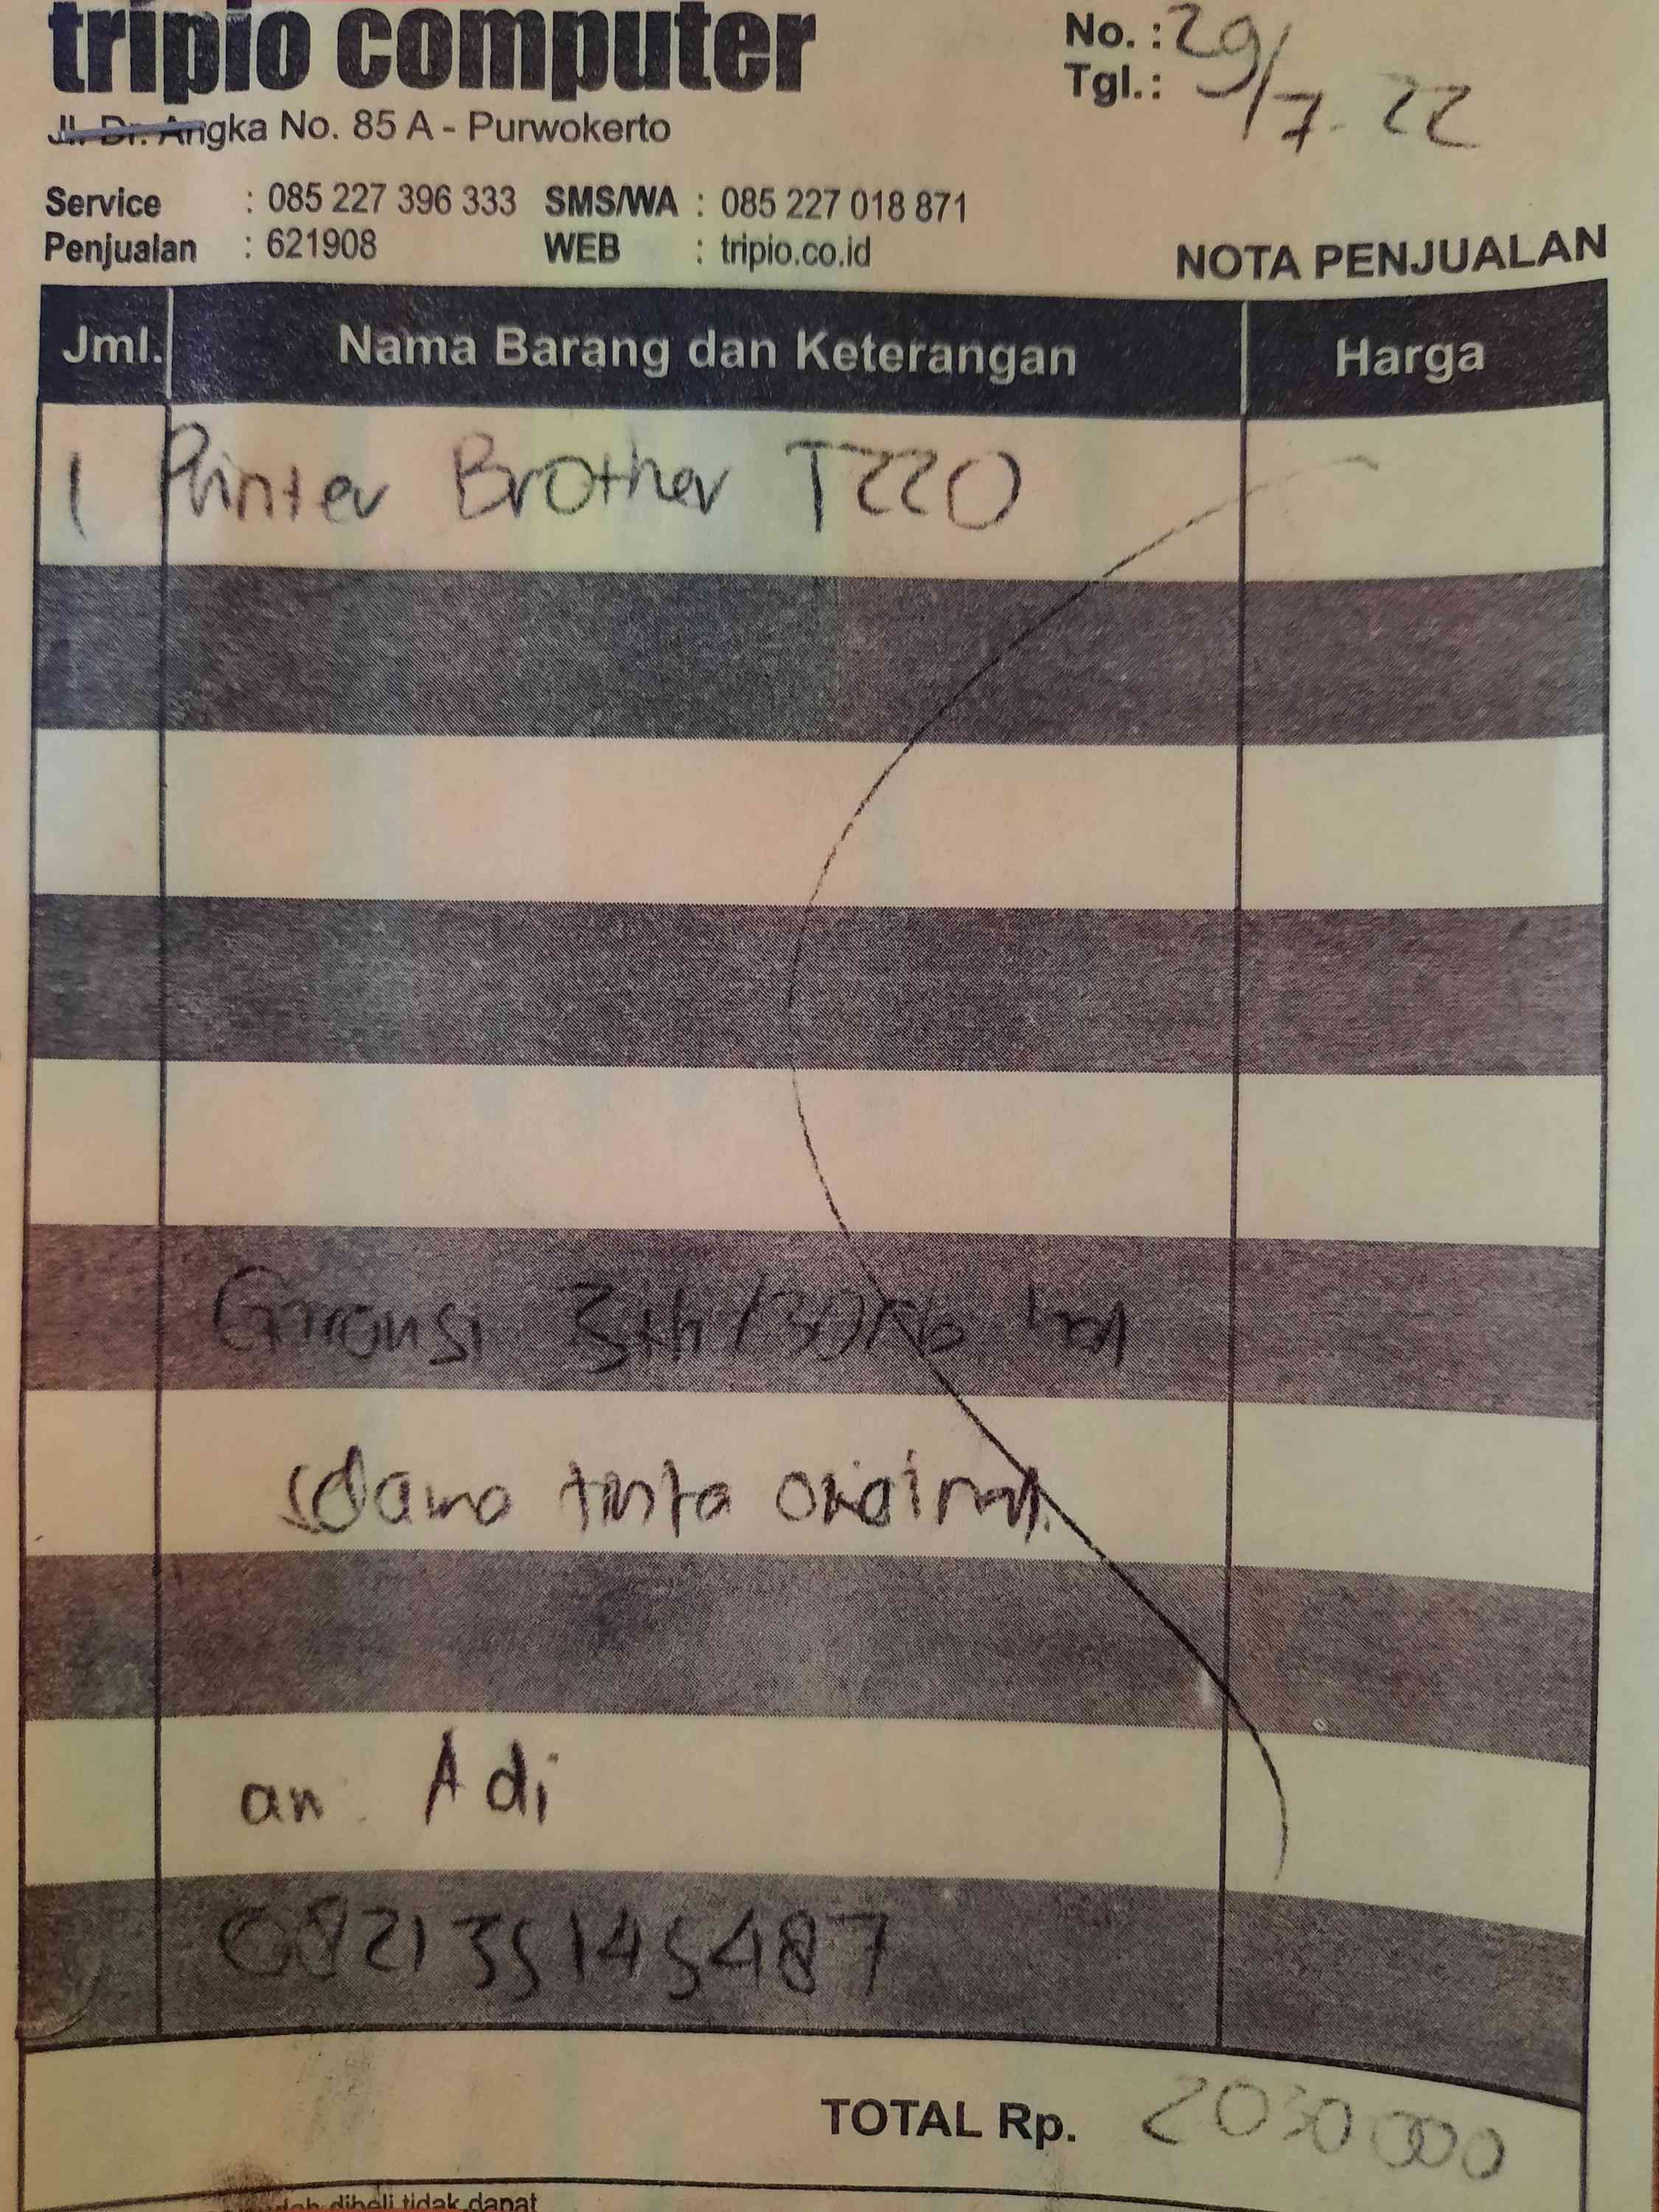 tripio computer
No. :
Tgl.: 29/7-22
Jl. Dr. Angka No. 85 A - Purwokerto
Service : 085 227 396 333 SMS/WA : 085 227 018 871
Penjualan : 621908 WEB : tripio.co.id
NOTA PENJUALAN
Jml. Nama Barang dan Keterangan Harga
1 Printer Brother T220
Garansi 3th/30rb
tinta original
an. Adi
082135145487
TOTAL Rp. 2030000
dibeli tidak dapat